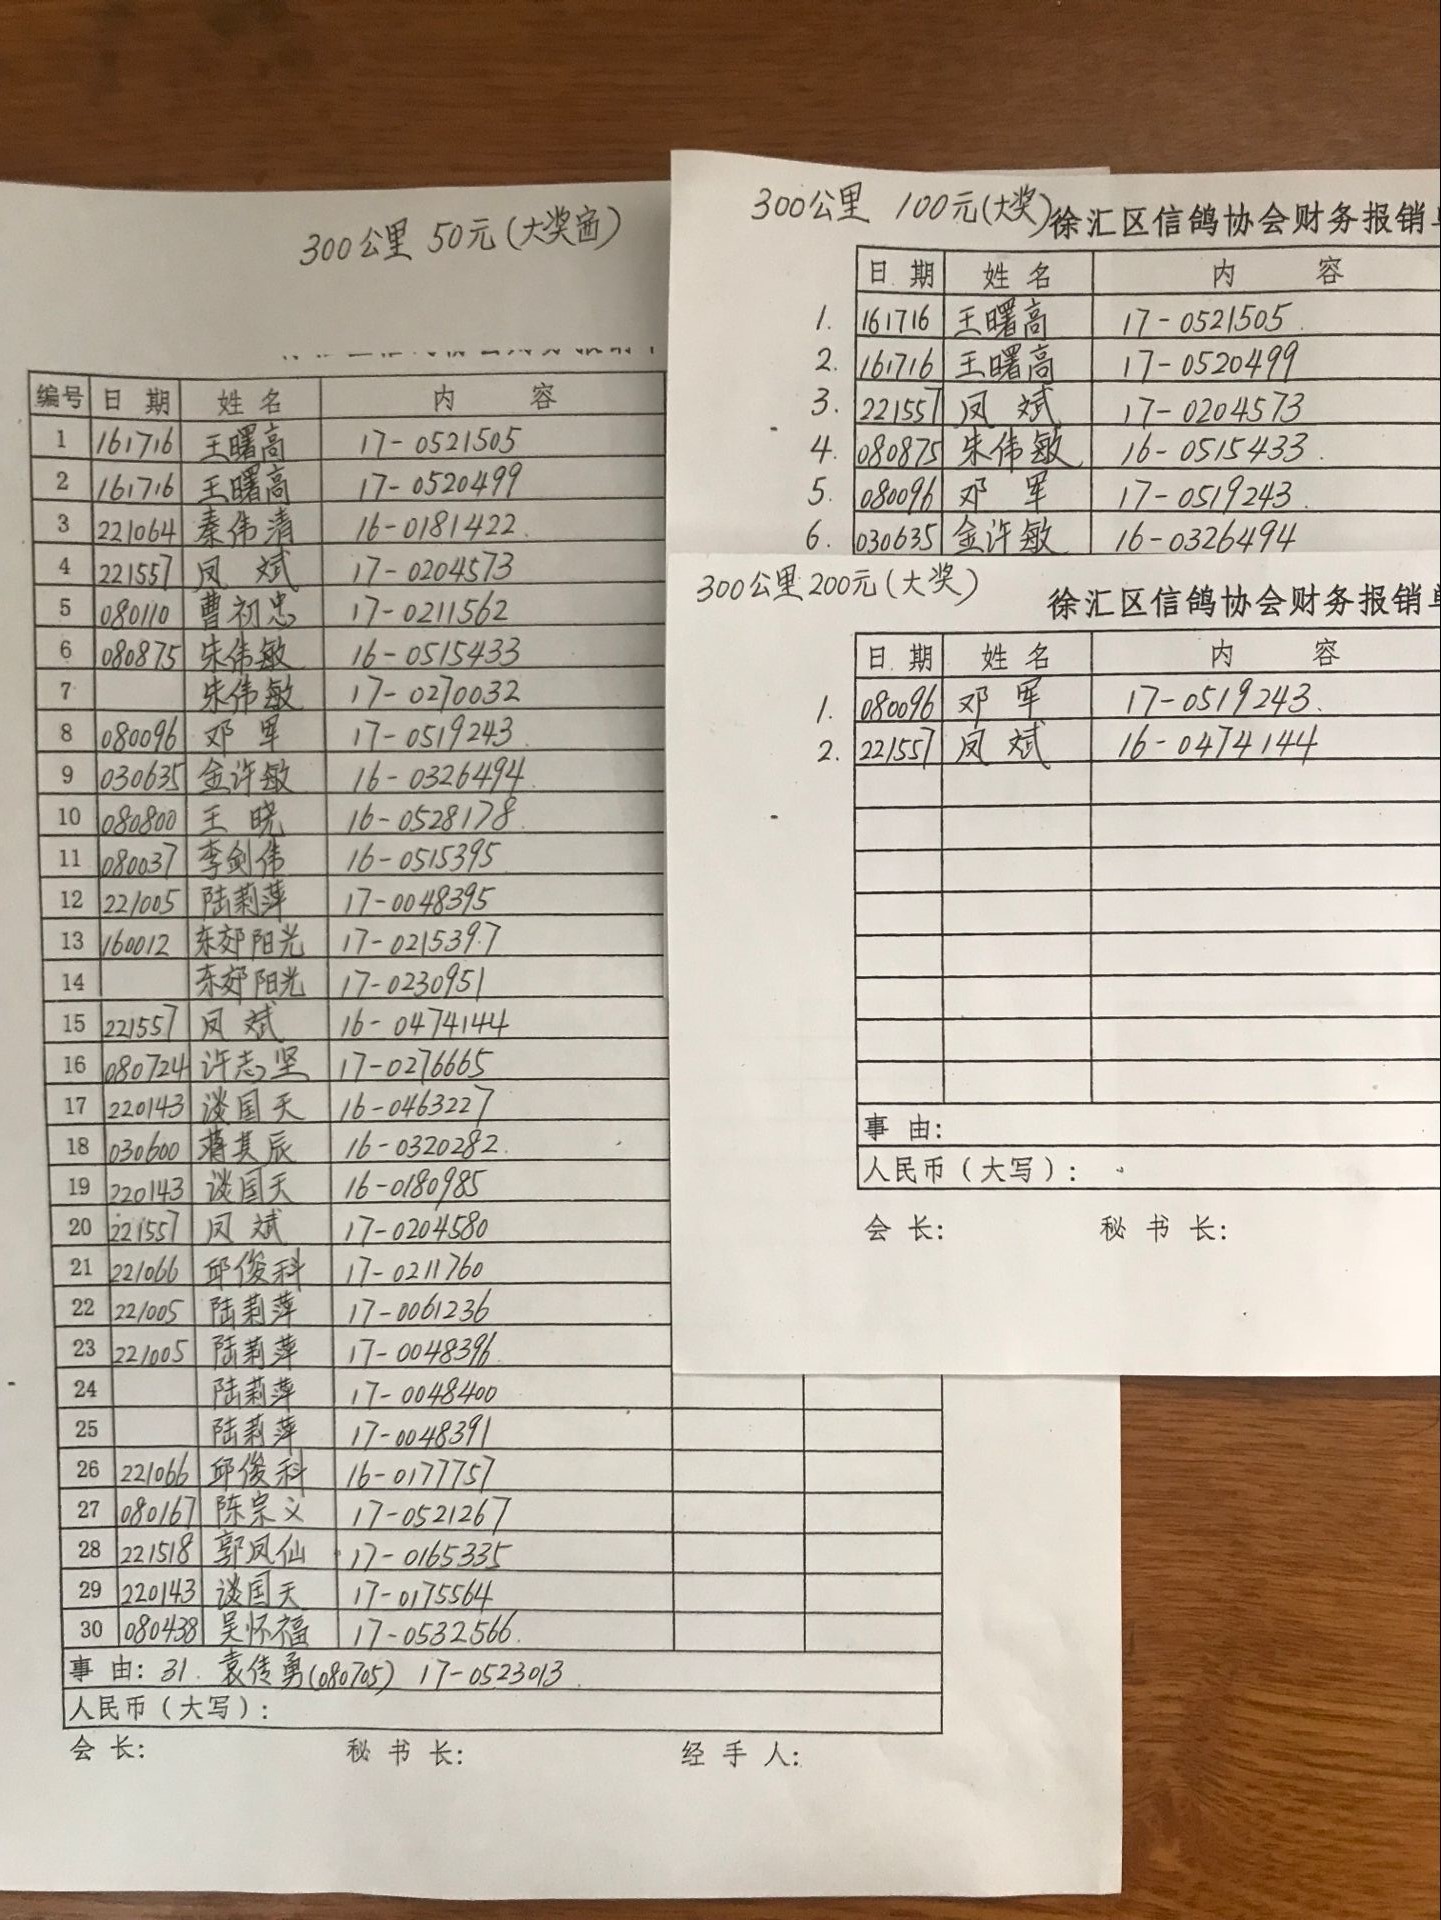 300公里 50元(大奖
编号 日 期 姓 名 内 容
1 161716 王曙高 17-0521505
2 161716 王曙高 17-0520499
3 221064 秦伟清 16-0181422
4 221557 凤 斌 17-0204573
5 080110 曹初忠 17-0211562
6 080875 朱伟敏 16-0515433
7 朱伟敏 17-0270032
8 080096 邓 军 17-0519243
9 030635 金许敏 16-0326494
10 080800 王 晓 16-0528178
11 080037 李剑伟 16-0515395
12 221005 陆莉萍 17-0048395
13 160012 东郊阳光 17-0215397
14 东郊阳光 17-0230951
15 221557 凤 斌 16-0474144
16 080724 许志坚 17-0276665
17 220143 谈国天 16-0463227
18 030600 蒋其辰 16-0320282
19 220143 谈国天 16-0180985
20 221557 凤 斌 17-0204580
21 221066 邱俊科 17-0211760
22 221005 陆莉萍 17-0061236
23 221005 陆莉萍 17-0048396
24 陆莉萍 17-0048400
25 陆莉萍 17-0048391
26 221066 邱俊科 16-0177757
27 080167 陈宗义 17-0521267
28 221518 郭凤仙 17-0165335
29 220143 谈国天 17-0175564
30 080438 吴怀福 17-0532566
事 由: 31. 袁传勇(080705) 17-0523013
人民币(大写):
会 长: 秘 书 长: 经 手 人:
300公里 100元(大奖)
徐汇区信鸽协会财务报销
日 期 姓 名 内 容
1. 161716 王曙高 17-0521505
2. 161716 王曙高 17-0520499
3. 221557 凤 斌 17-0204573
4. 080875 朱伟敏 16-0515433
5. 080096 邓 军 17-0519243
6. 030635 金许敏 16-0326494
300公里 200元(大奖)
徐汇区信鸽协会财务报销
日 期 姓 名 内 容
1. 080096 邓 军 17-0519243
2. 221557 凤 斌 16-0474144
事 由:
人民币(大写):
会 长: 秘 书 长: